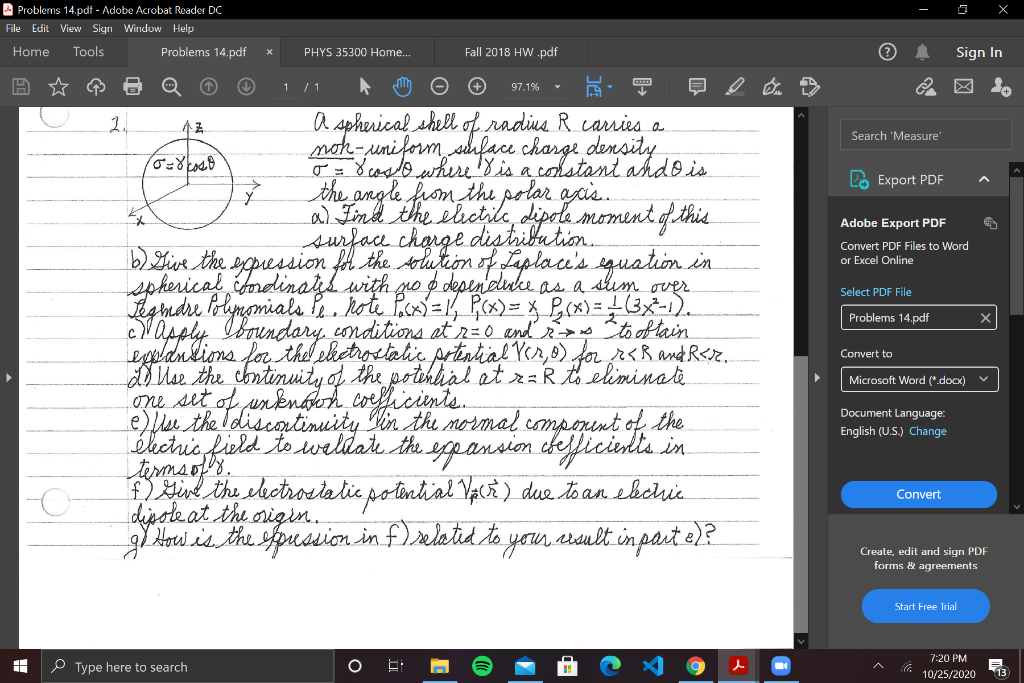 Problems 14.pdf - Adobe Acrobat Reader DC
File Edit View Sign Window Help
Home Tools Problems 14.pdf × PHYS 35300 Home... Fall 2018 HW .pdf Sign In
1 / 1 97.1%
2. z y x σ = γ cosθ
A spherical shell of radius R carries a
non-uniform surface charge density
σ = γ cosθ, where γ is a constant and θ is
the angle from the polar axis.
a) Find the electric dipole moment of this
surface charge distribution.
b) Give the expression for the solution of Laplace's equation in
spherical coordinates with no φ dependence as a sum over
Legendre Polynomials Pℓ. Note P₀(x)=1, P₁(x)=x, P₂(x)=½(3x²-1).
c) Apply boundary conditions at r=0 and r→∞ to obtain
expansions for the electrostatic potential V(r,θ) for r<R and R<r.
d) Use the continuity of the potential at r=R to eliminate
one set of unknown coefficients.
e) Use the discontinuity in the normal component of the
electric field to evaluate the expansion coefficients in
terms of γ.
f) Give the electrostatic potential V_p⃗(r⃗) due to an electric
dipole at the origin.
g) How is the expression in f) related to your result in part e)?
Search 'Measure'
Export PDF
Adobe Export PDF
Convert PDF Files to Word
or Excel Online
Select PDF File
Problems 14.pdf ×
Convert to
Microsoft Word (*.docx)
Document Language:
English (U.S.) Change
Convert
Create, edit and sign PDF
forms & agreements
Start Free Trial
Type here to search
7:20 PM
10/25/2020
13